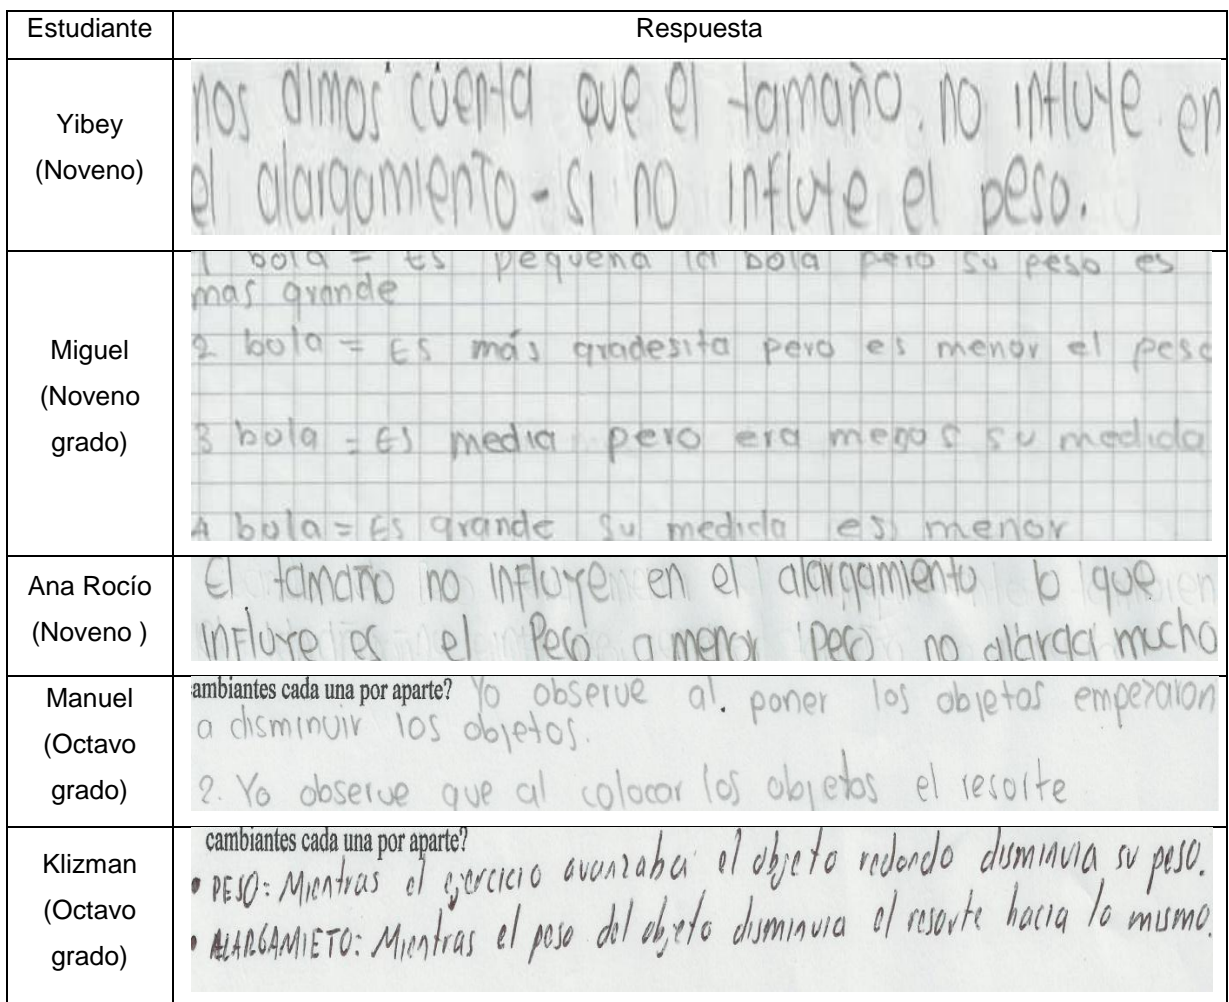 Estudiante Respuesta
Yibey
(Noveno)
nos dimos cuenta que el tamaño no influye en
el alargamiento - si no influye el peso.
Miguel
(Noveno
grado)
1 bola = Es pequeña la bola pero su peso es
mas grande
2 bola = Es más gradesita pero es menor el peso
3 bola = Es media pero era menos su medida
4 bola = Es grande su medida es menor
Ana Rocío
(Noveno )
El tamaño no influye en el alargamiento lo que
influye es el Peso a menor peso no alarga mucho
Manuel
(Octavo
grado)
ambiantes cada una por aparte? Yo observe al. poner los objetos empezaron
a disminuir los objetos.
2. Yo observe que al colocar los objetos el resorte
Klizman
(Octavo
grado)
cambiantes cada una por aparte?
• PESO: Mientras el ejercicio avanzaba el objeto redondo disminuia su peso.
• ALARGAMIETO: Mientras el peso del objeto disminuia el resorte hacia lo mismo.